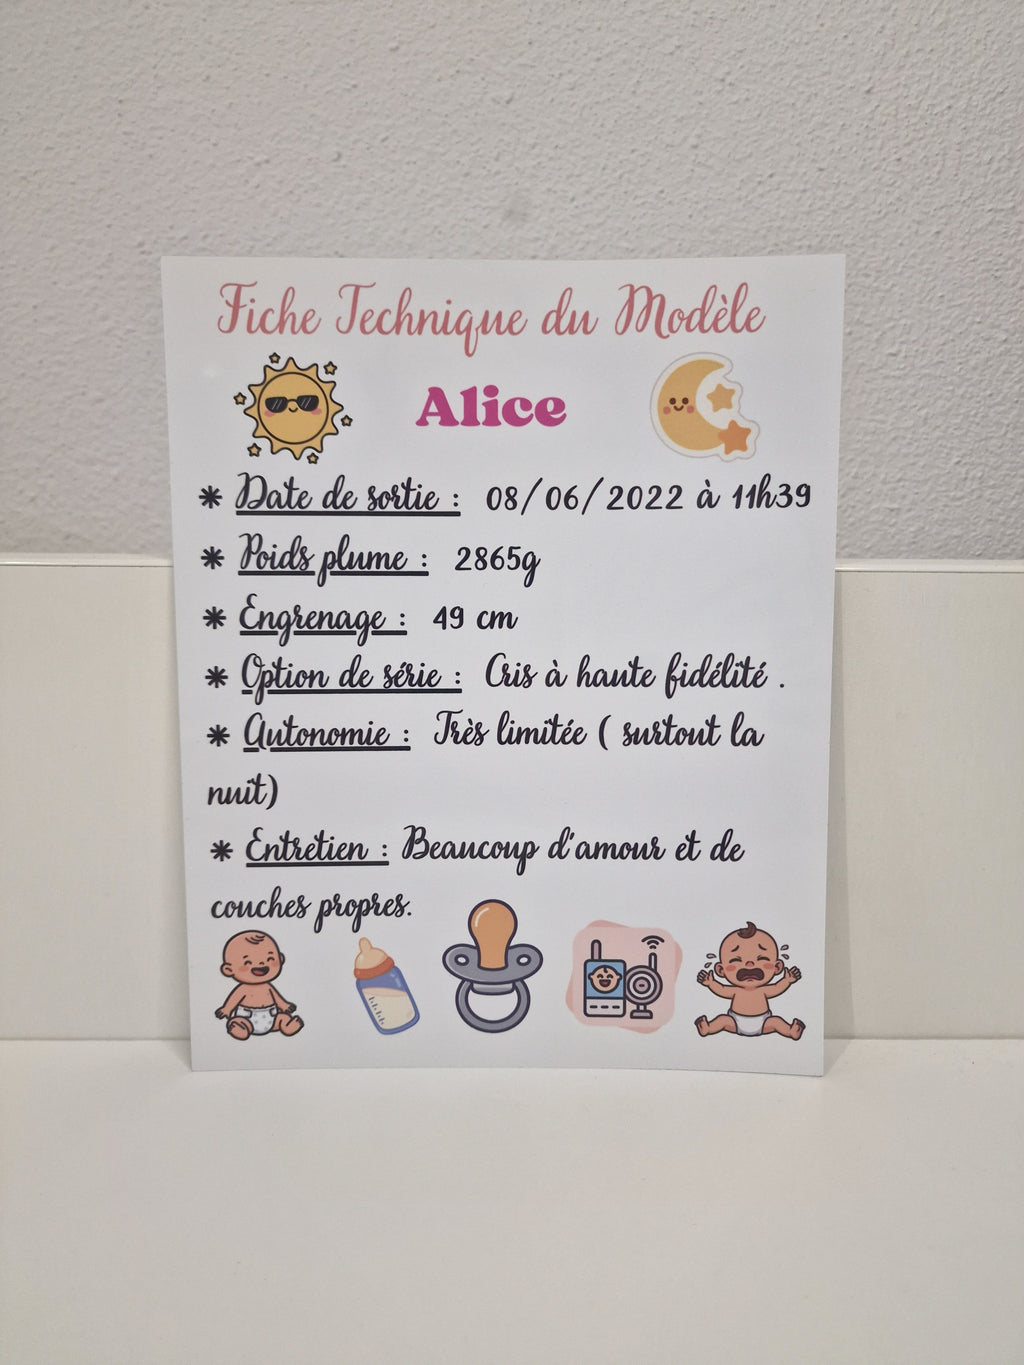 Fiche Technique du Modèle
Alice
* Date de sortie : 08/06/2022 à 11h39
* Poids plume : 2865g
* Engrenage : 49 cm
* Option de série : Cris à haute fidélité .
* Autonomie : Très limitée ( surtout la
nuit)
* Entretien : Beaucoup d'amour et de
couches propres.